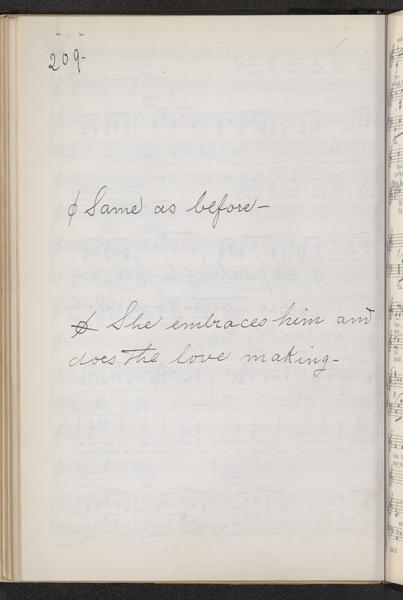 209.
ϕ Same as before—
ϕ She embraces him and
does the love making—